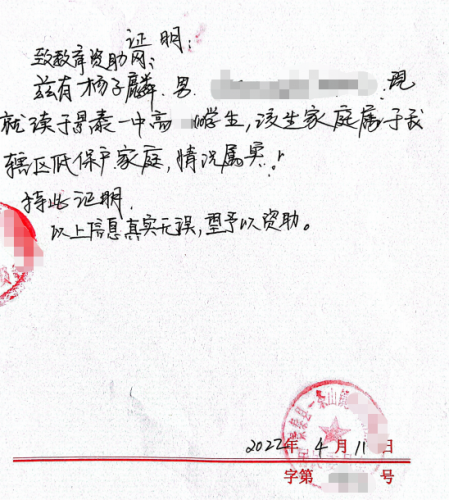 证明:
致教育资助网:
兹有杨子麟.男 现
就读于景泰一中高 学生,该生家庭属于我
辖区低保户家庭,情况属实!
特此证明.
以上信息真实无误,望予以资助。
景泰县一条山镇
2022年4月11日
字第 号